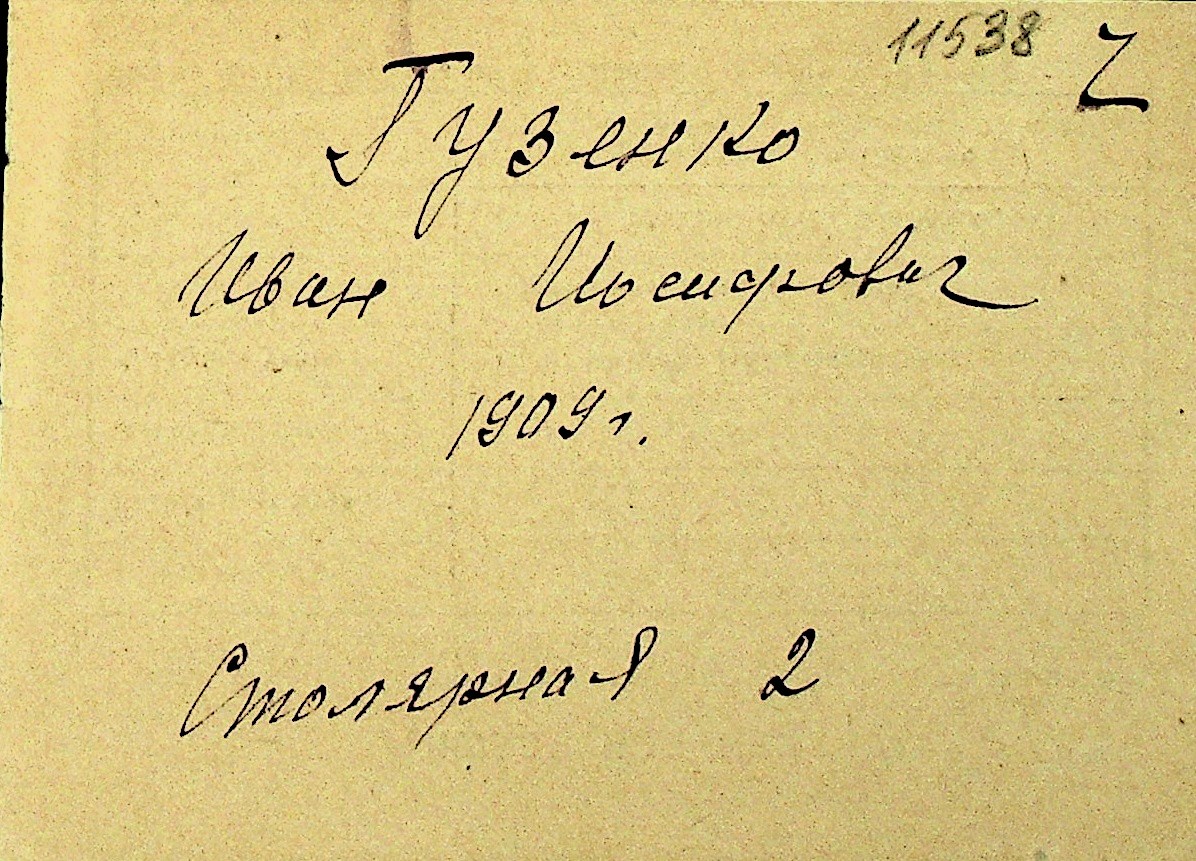 11538
Гузенко
Иван Иосифович
1909 г.
Столярная 2